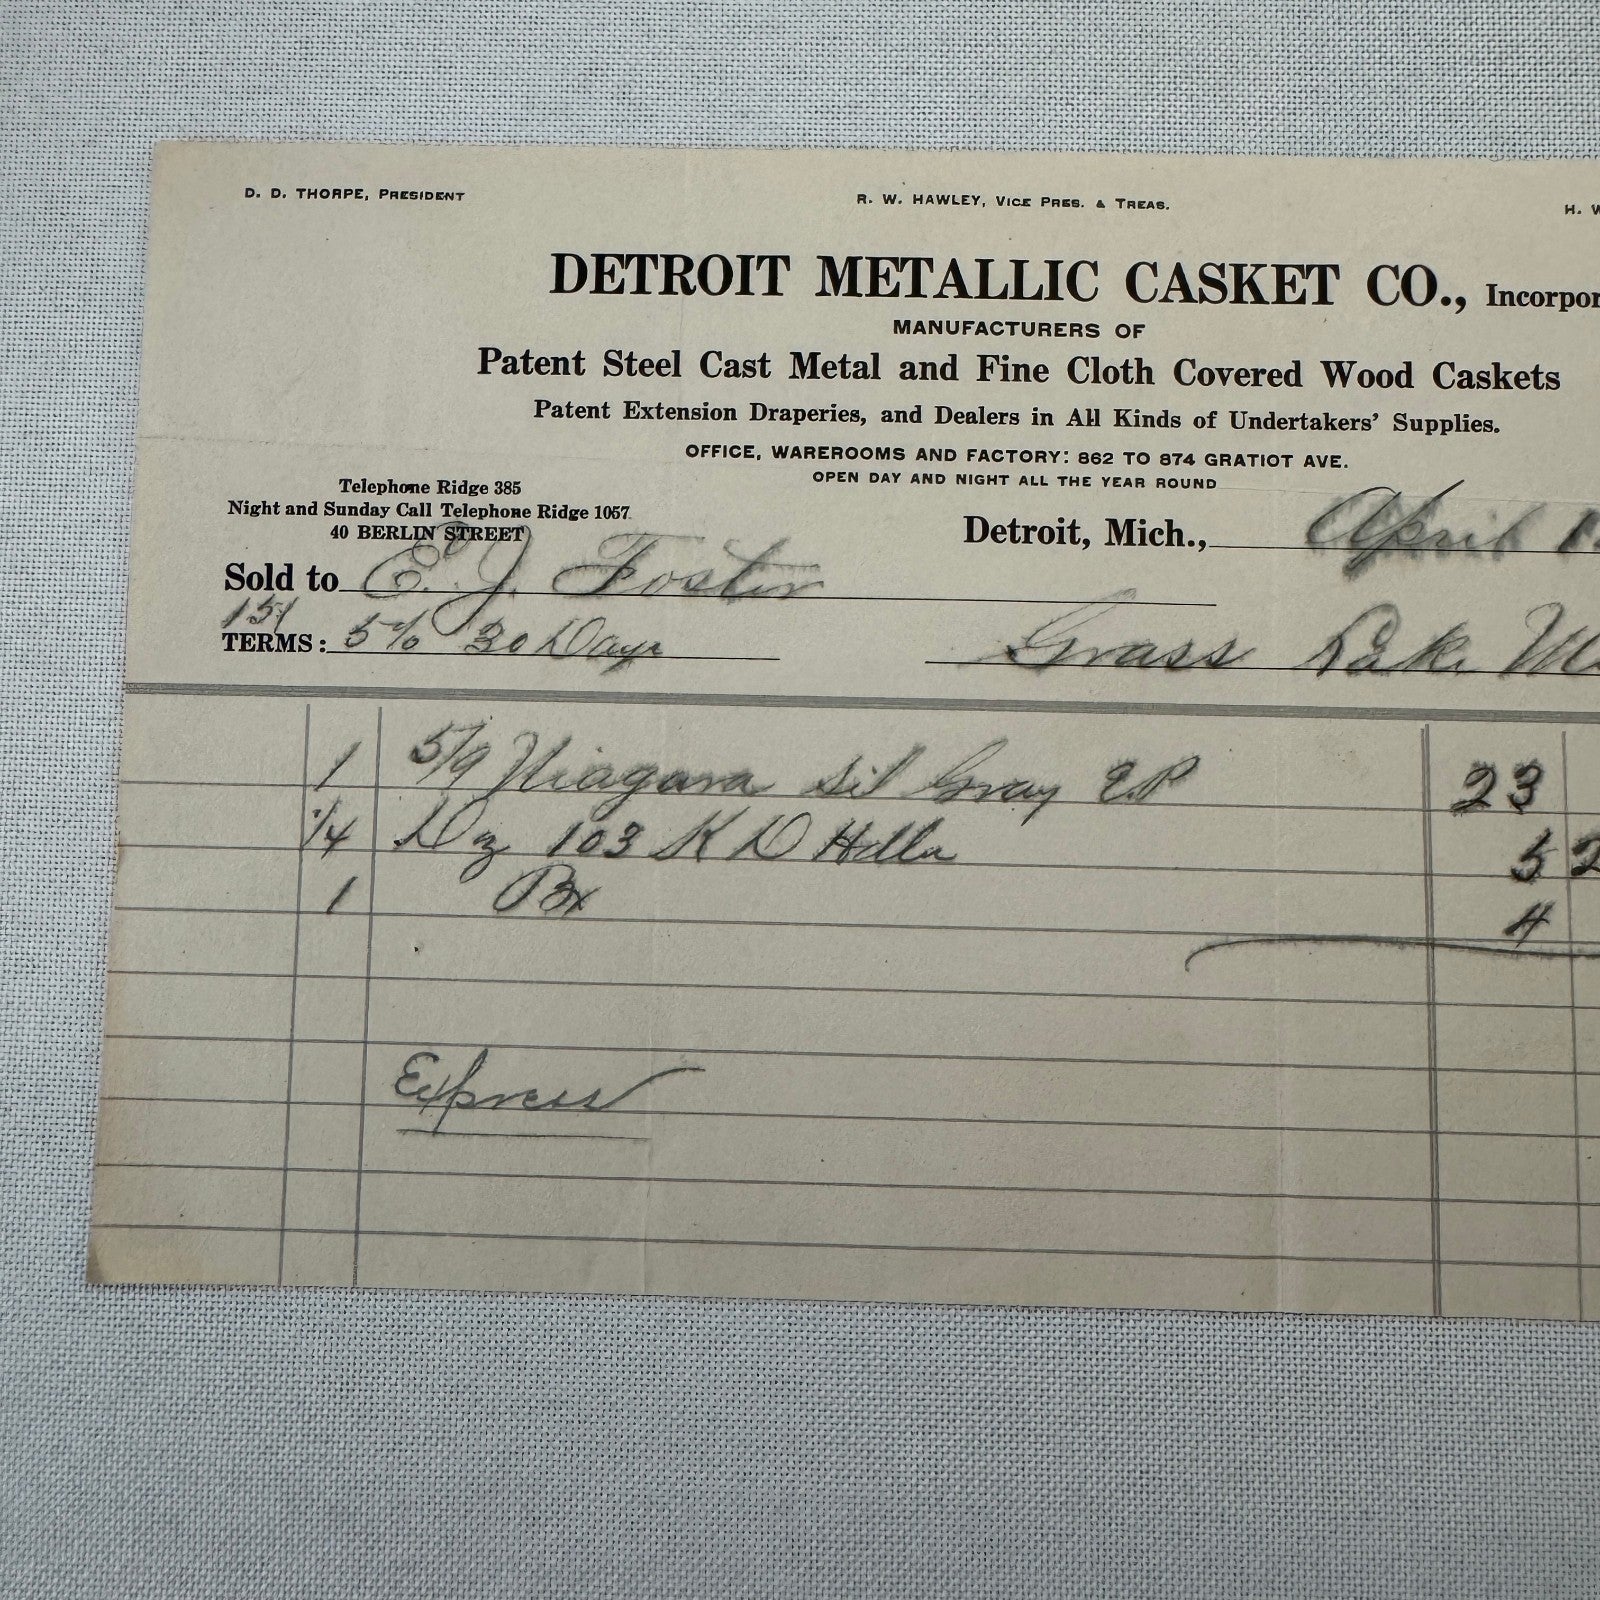 D. D. THORPE, PRESIDENT
R. W. HAWLEY, VICE PRES. & TREAS.
H. W
DETROIT METALLIC CASKET CO., Incorpor
MANUFACTURERS OF
Patent Steel Cast Metal and Fine Cloth Covered Wood Caskets
Patent Extension Draperies, and Dealers in All Kinds of Undertakers' Supplies.
OFFICE, WAREROOMS AND FACTORY: 862 TO 874 GRATIOT AVE.
OPEN DAY AND NIGHT ALL THE YEAR ROUND
Telephone Ridge 385
Night and Sunday Call Telephone Ridge 1057
40 BERLIN STREET
Detroit, Mich., April 1
Sold to E. J. Foster
151
TERMS: 5% 30 Days
Grass Lake Mi
1 5/9 Niagara Sil Gray E.P 23
1/4 Dz 103 K D Hdls 5 2
1 Bx 4
Express